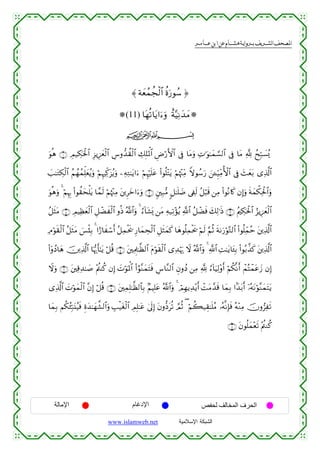 المصحف الشريف برواية هشام عن ابن عامر
﴿ سُورَةُ ٱلْجُمُعَةِ ﴾
*مَدَنِيَّةٌ وَءَايَاتُهَا (11)*
يُسَبِّحُ لِلَّهِ مَا فِى ٱلسَّمَٰوَٰتِ وَمَا فِى ٱلْأَرْضِ ٱلْمَلِكِ ٱلْقُدُّوسِ ٱلْعَزِيزِ ٱلْحَكِيمِ ۝ هُوَ
ٱلَّذِى بَعَثَ فِى ٱلْأُمِّيِّـۧنَ رَسُولًا مِّنْهُمْ يَتْلُوا۟ عَلَيْهِمْ ءَايَٰتِهِۦ وَيُزَكِّيهِمْ وَيُعَلِّمُهُمُ ٱلْكِتَٰبَ
وَٱلْحِكْمَةَ وَإِن كَانُوا۟ مِن قَبْلُ لَفِى ضَلَٰلٍ مُّبِينٍ ۝ وَءَاخَرِينَ مِنْهُمْ لَمَّا يَلْحَقُوا۟ بِهِمْ ۚ وَهُوَ
ٱلْعَزِيزُ ٱلْحَكِيمُ ۝ ذَٰلِكَ فَضْلُ ٱللَّهِ يُؤْتِيهِ مَن يَشَآءُ ۚ وَٱللَّهُ ذُو ٱلْفَضْلِ ٱلْعَظِيمِ ۝ مَثَلُ
ٱلَّذِينَ حُمِّلُوا۟ ٱلتَّوْرَىٰةَ ثُمَّ لَمْ يَحْمِلُوهَا كَمَثَلِ ٱلْحِمَارِ يَحْمِلُ أَسْفَارًۢا ۚ بِئْسَ مَثَلُ ٱلْقَوْمِ
ٱلَّذِينَ كَذَّبُوا۟ بِـَٔايَٰتِ ٱللَّهِ ۚ وَٱللَّهُ لَا يَهْدِى ٱلْقَوْمَ ٱلظَّٰلِمِينَ ۝ قُلْ يَٰٓأَيُّهَا ٱلَّذِينَ هَادُوٓا۟
إِن زَعَمْتُمْ أَنَّكُمْ أَوْلِيَآءُ لِلَّهِ مِن دُونِ ٱلنَّاسِ فَتَمَنَّوُا۟ ٱلْمَوْتَ إِن كُنتُمْ صَٰدِقِينَ ۝ وَلَا
يَتَمَنَّوْنَهُۥٓ أَبَدًۢا بِمَا قَدَّمَتْ أَيْدِيهِمْ ۚ وَٱللَّهُ عَلِيمٌۢ بِٱلظَّٰلِمِينَ ۝ قُلْ إِنَّ ٱلْمَوْتَ ٱلَّذِى
تَفِرُّونَ مِنْهُ فَإِنَّهُۥ مُلَٰقِيكُمْ ۖ ثُمَّ تُرَدُّونَ إِلَىٰ عَٰلِمِ ٱلْغَيْبِ وَٱلشَّهَٰدَةِ فَيُنَبِّئُكُم بِمَا
كُنتُمْ تَعْمَلُونَ ۝
الحرف المخالف لحفص الإدغام الإمالة
الشبكة الإسلامية www.islamweb.net